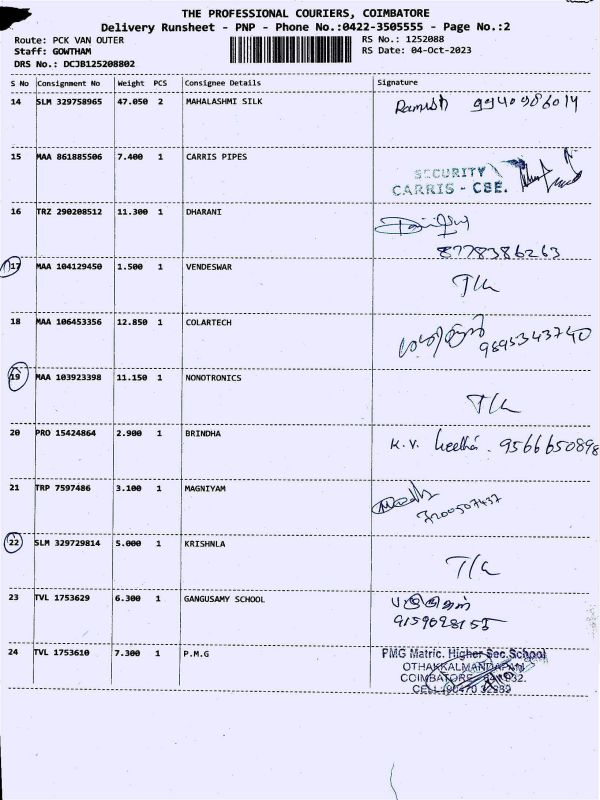 THE PROFESSIONAL COURIERS, COIMBATORE
Delivery Runsheet - PNP - Phone No.:0422-3505555 - Page No.:2
Route: PCK VAN OUTER RS No.: 1252088
Staff: GOWTHAM RS Date: 04-Oct-2023
DRS No.: DCJB125208802
S No Consignment No Weight PCS Consignee Details Signature
14 SLM 329758965 47.050 2 MAHALASHMI SILK Ramesh
15 MAA 861885506 7.400 1 CARRIS PIPES
SECURITY
CARRIS - CBE.
16 TRZ 290208512 11.300 1 DHARANI
8778386263
17 MAA 104129450 1.500 1 VENDESWAR T/C
18 MAA 106453356 12.850 1 COLARTECH
9895343740
19 MAA 103923398 11.150 1 NONOTRONICS T/C
20 PRO 15424864 2.900 1 BRINDHA K.V. 9566650898
21 TRP 7597486 3.100 1 MAGNIYAM
7200507437
22 SLM 329729814 5.000 1 KRISHNLA T/C
23 TVL 1753629 6.300 1 GANGUSAMY SCHOOL
24 TVL 1753610 7.300 1 P.M.G PMG Matric. Higher Sec.School
OTHAKKALMANDAPAM
COIMBATORE
CELL